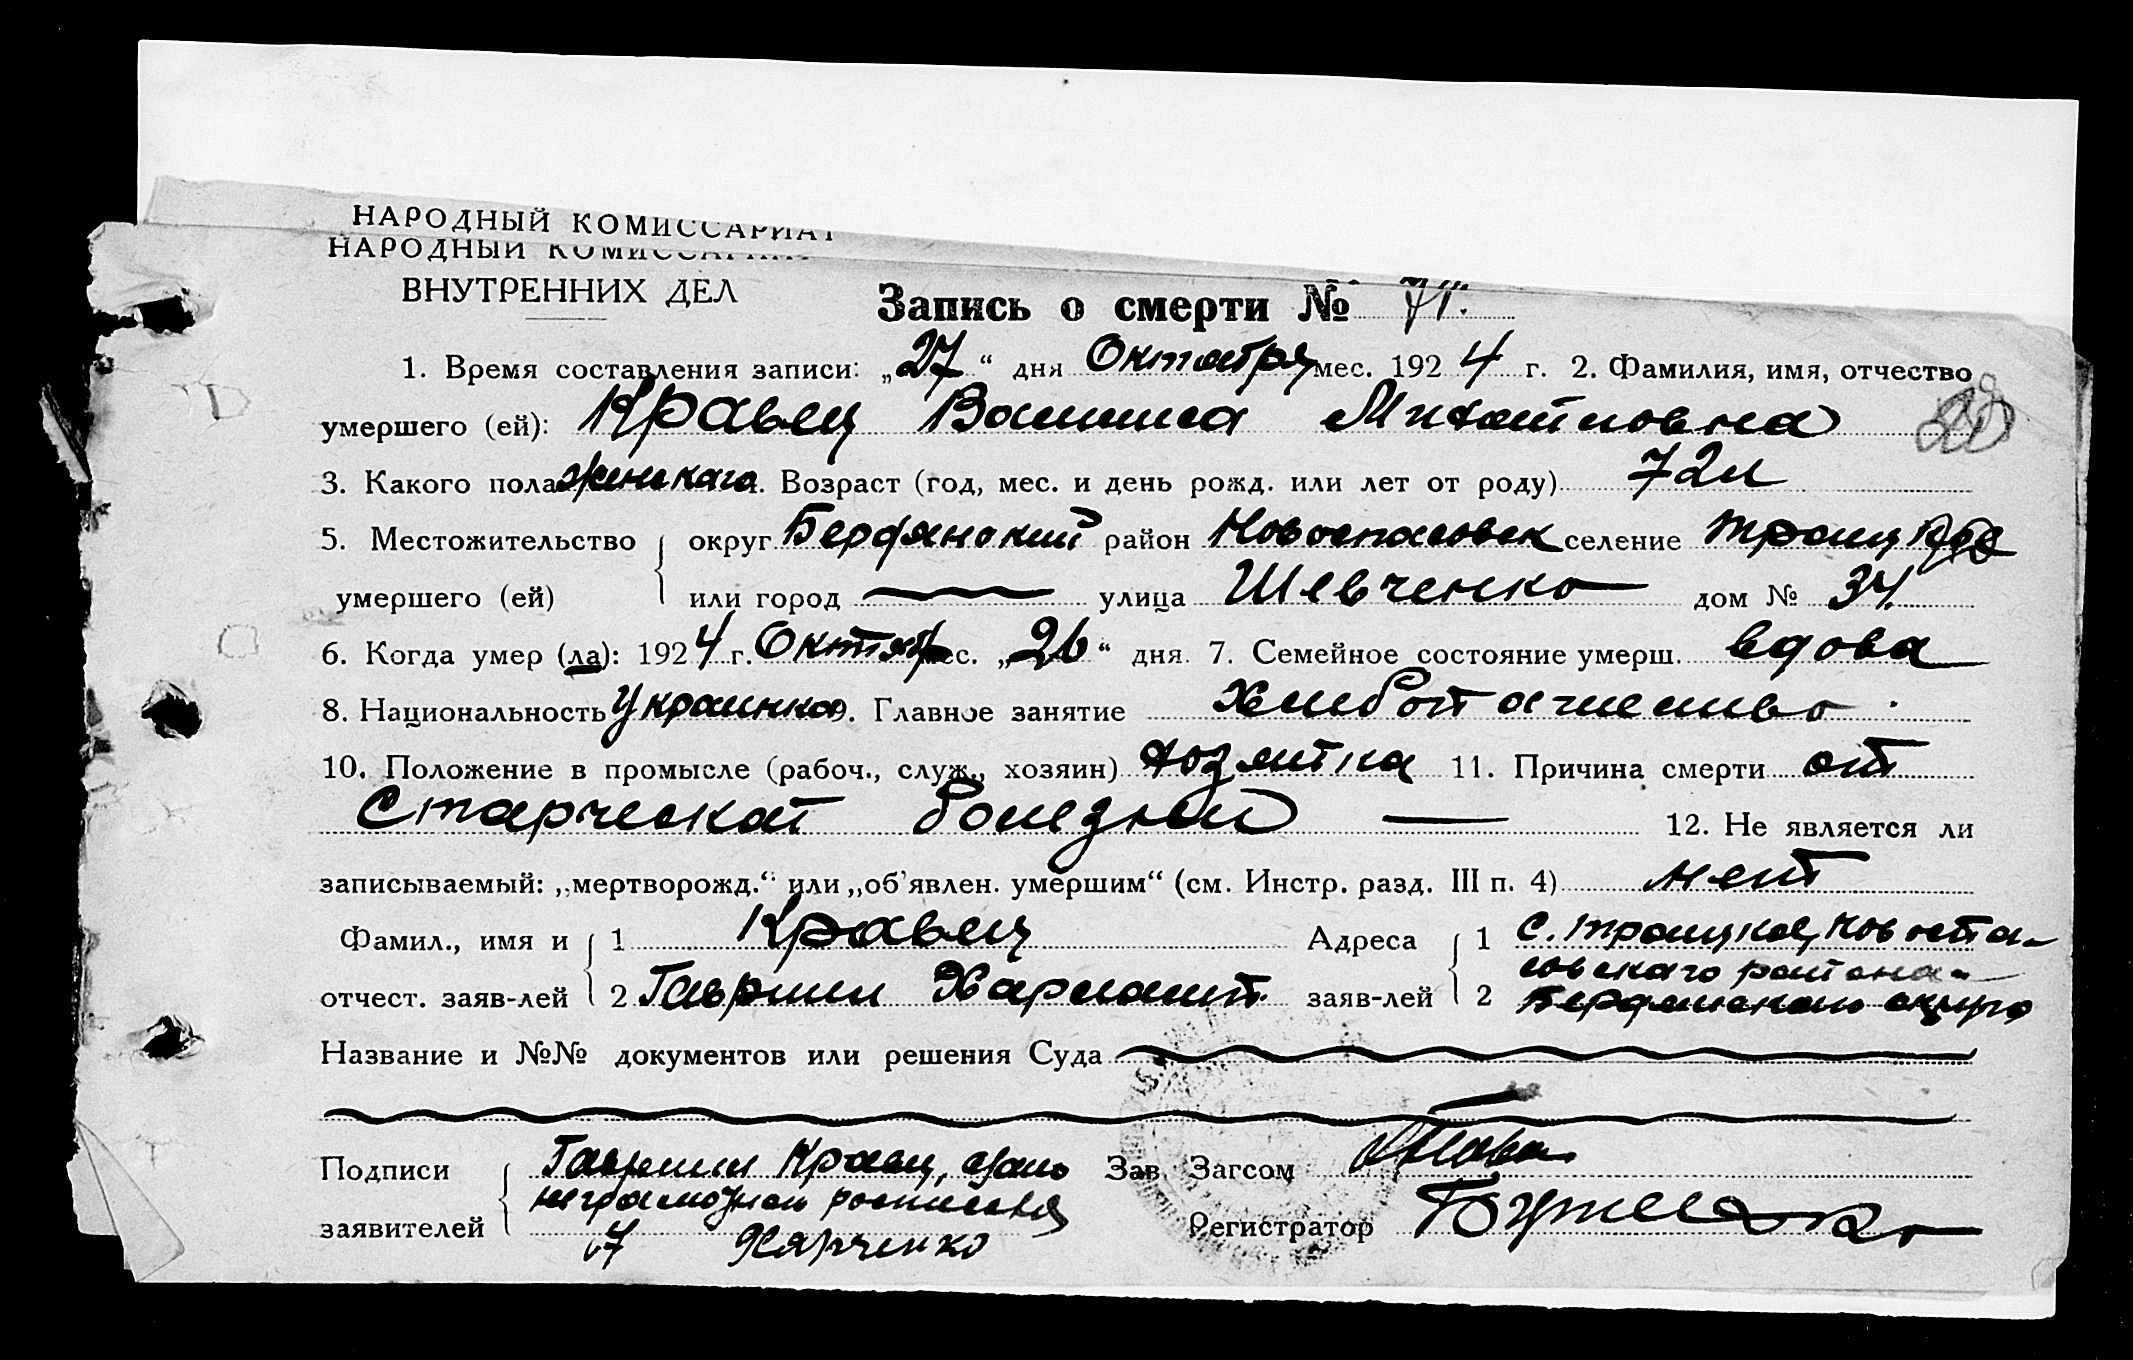 НАРОДНЫЙ КОМИССАРИАТ
НАРОДНЫЙ КОМИССАРИАТ
ВНУТРЕННИХ ДЕЛ
Запись о смерти № 71.
1. Время составления записи: „27“ дня Октября мес. 1924 г. 2. Фамилия, имя, отчество
умершего (ей): Кравец Васиlиса Михайловна
3. Какого пола женскаго. Возраст (год, мес. и день рожд. или лет от роду) 72 л
5. Местожительство округ Бердянский район Новоспасовск селение Троицкое
умершего (ей) или город улица Шевченко дом № 34.
6. Когда умер (ла): 1924 г. Октяб мес. „26“ дня. 7. Семейное состояние умерш. вдова
8. Национальность Украинка 9. Главное занятие Хлебопашество
10. Положение в промысле (рабоч., служ., хозяин) хозяйка 11. Причина смерти от
Старческой болезни 12. Не является ли
записываемый: „мертворожд.“ или „об'явлен. умершим“ (см. Инстр. разд. III п. 4) нет
Фамил., имя и 1 Кравец Адреса 1 с. Троицкое, Новоспа-
совскаго района
отчест. заяв-лей 2 Гавриил заяв-лей 2 Бердянскаго округа
Название и №№ документов или решения Суда
Подписи Гавриил Кравец, Зав Загсом
неграмотный
заявителей Харченко Регистратор